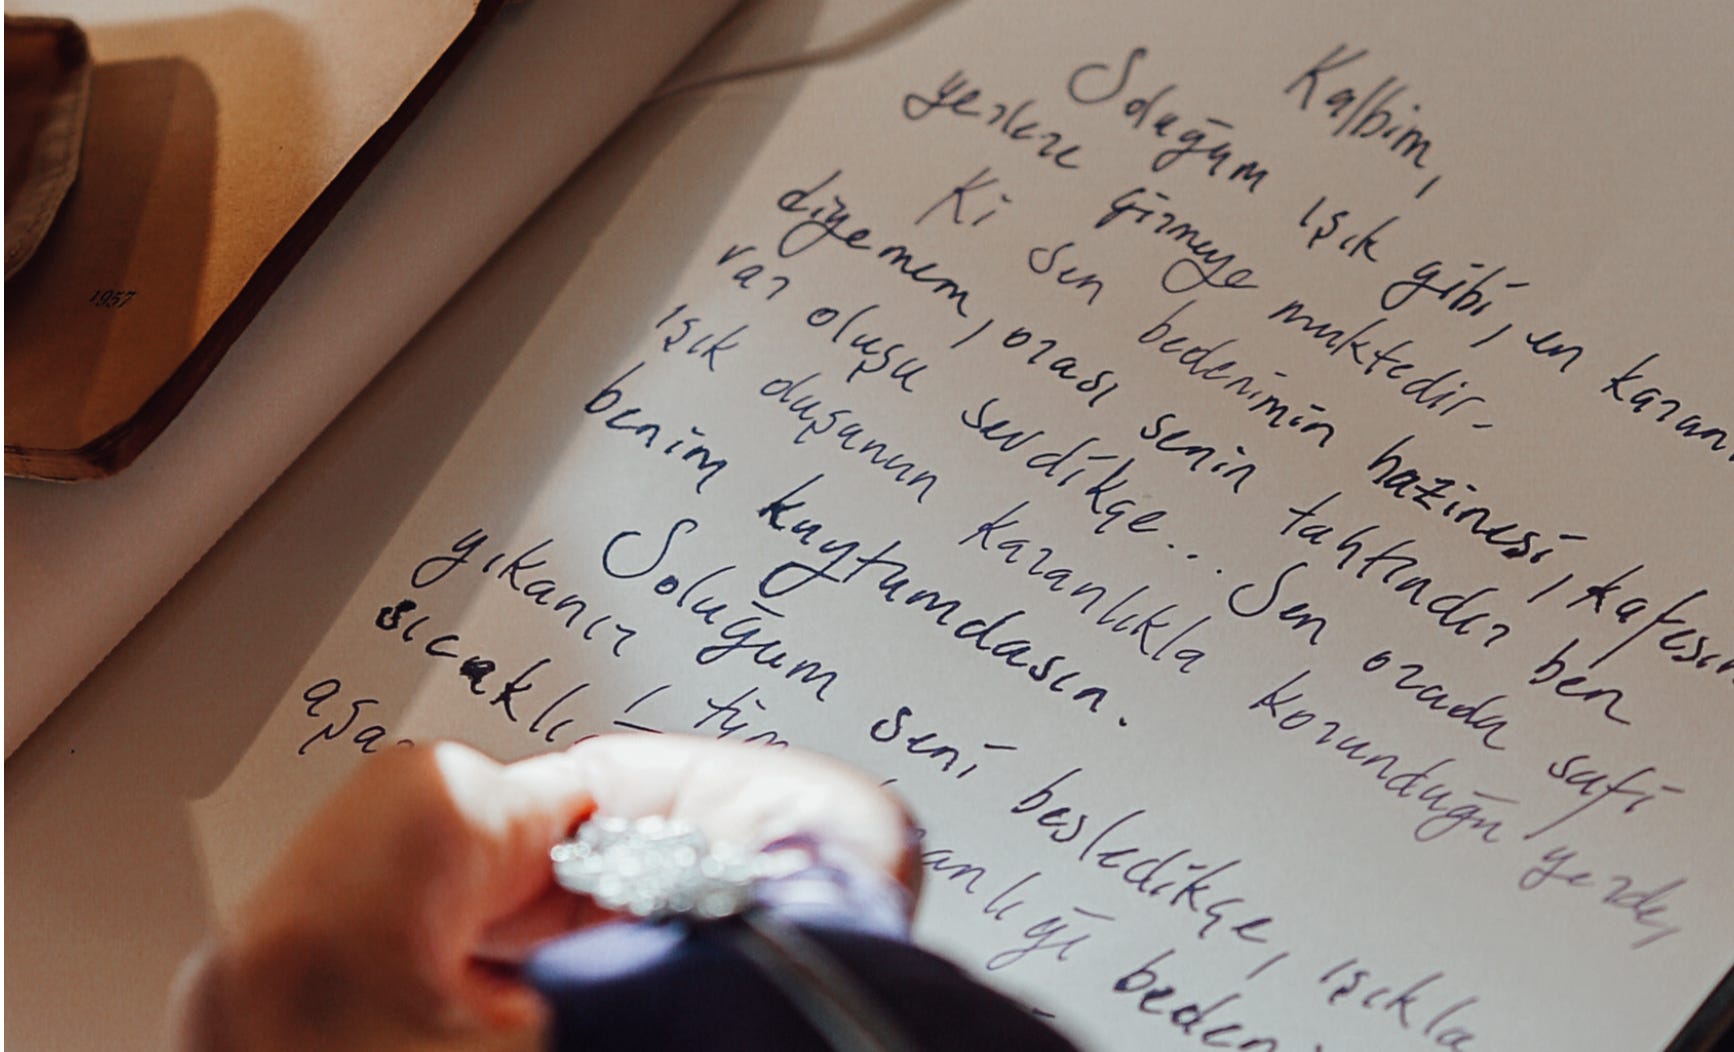 1957
Kalbim,
Soluğum ışık gibi, en karan
yerlere girmeye muktedir-
Ki sen bedenimin hazinesi, kafesin
diyemem, orası senin tahtındır ben
var oluşu sevdikçe.. Sen orada safi
ışık duşunun karanlıkla korunduğu yerde,
benim kuytumdasın.
Soluğum seni besledikçe, ışıkla
yıkanır tüm anlığı beden
sıcaklı
aşa